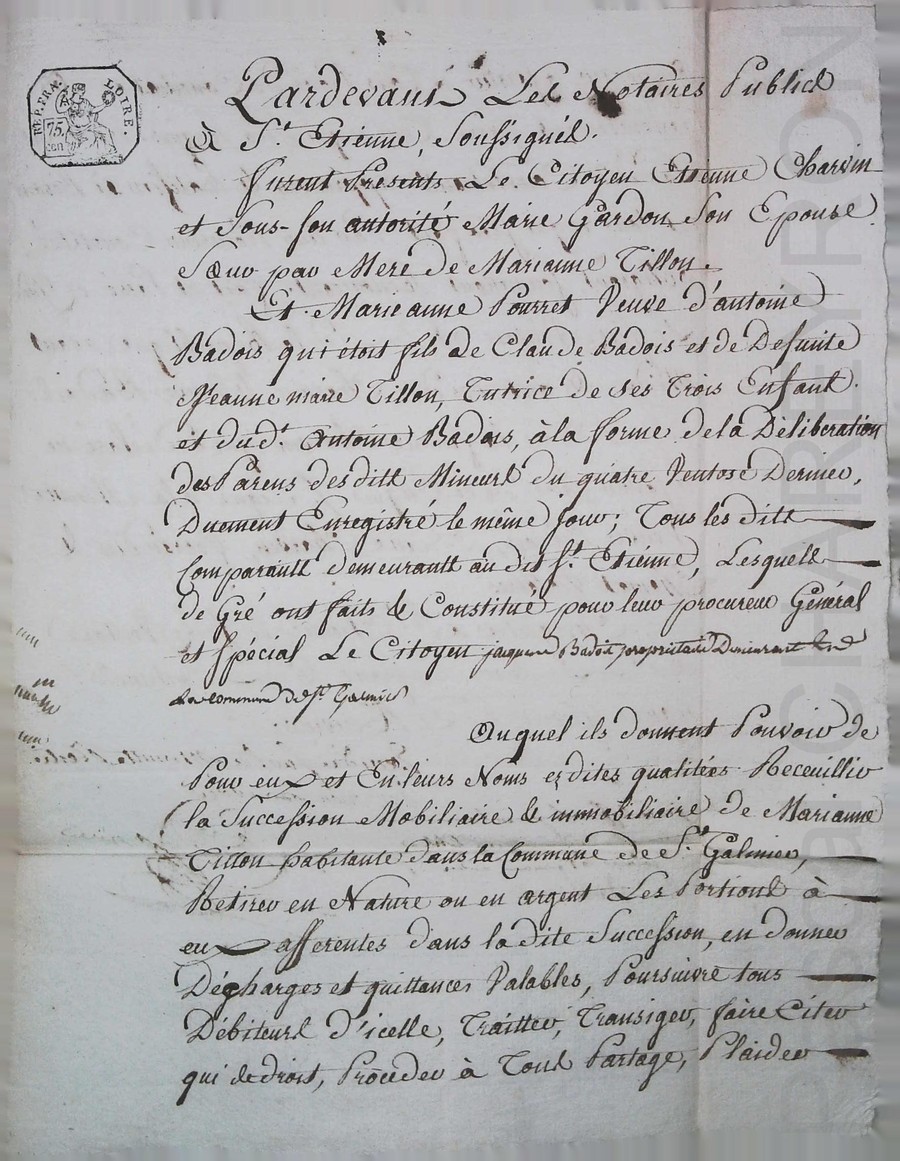 REP. FRA. LOIRE.
75. cen
Pardevant Les Notaires Publics
à St. Etienne, Soussignés.
furent Presents Le Citoyen Etienne Charvin
et Sous-son autorité Marie Gardon Son Epouse
Sœur par Mere de Marianne Tillon.
Et Marieanne Pourret Veuve d'antoine
Badois qui étoit fils de Claude Badois et de Defunte
Jeanne marie Tillon, Tutrice de ses Trois Enfants
et dud. Antoine Badois, à la forme de la Déliberation
des Parens desdits Mineurs du quatre Ventose Dernier,
Duement Enregistré le même jour; Tous lesdits
Comparants demeurants audit St. Etienne, Lesquels
de Gré ont faits & Constitué pour leur procureur Général
et Spécial Le Citoyen jacques Badois propriétaire Demeurant
la commune de St. Galmier
Auquel ils donnent Pouvoir de
Pour eux et En leurs Noms esdites qualitées Receuillir
la Succession Mobiliaire & immobiliaire de Marianne
Tillon habitante dans la Commune de St. Galmier,
Retirer en Nature ou en argent Les Portions à
eux afferentes dans ladite Succession, en donner
Décharges et quittances Valables, Poursuivre tous
Débiteurs d'icelle, Traitter, Transiger, faire Citer
qui de droit, Procéder à Tous Partage, Plaider
CHARLEYRON